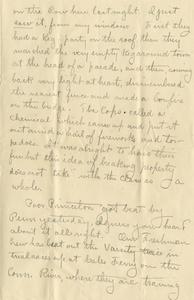 on the Row here last night. I just
saw it, from my window. First they
had a big part, on the roof, then they
marched the very empty, Pigground town
at the head of a parade, and then coming
back very light at heart, dismembered
the nearest fence and made a bonfire
on the bridge. The Cops called a
chemical which came up and put it
out amid a hail of fireworks and tor-
pedoes. It was alright to have their
fun but this idea of breaking property
does not "take" with the class as a
whole.
Poor Princeton got beat by
Penn yesterday. I guess you heard
about it all right. Our Freshman
crew has beat out the Varsity twice in
trial races up at Gales Ferry on the
Conn. River, where they are training